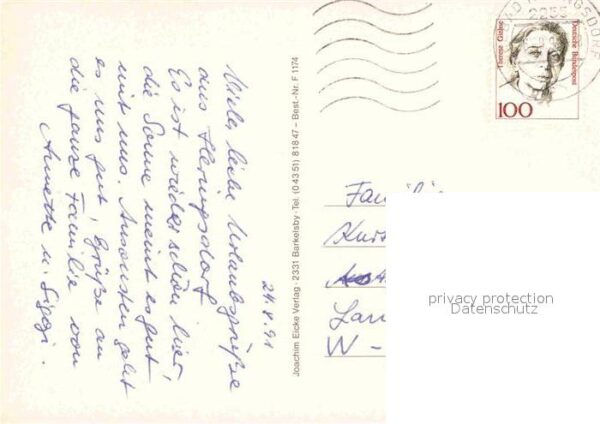 Viele liebe Urlaubsgrüße
aus Heringsdorf
Es ist wieder schön hier,
die Sonne meint es gut
mit uns. Ansonsten geht
es uns gut, Grüße an
die ganze Familie von
Annette u. Siggi.
24.8.91
Joachim Eicke Verlag · 2331 Barkelsby · Tel. (04351) 81847 – Best.-Nr. F 1174
2255
Therese Giehse
Deutsche Bundespost
100
Familie
Kurt
Lan
W -
privacy protection
Datenschutz